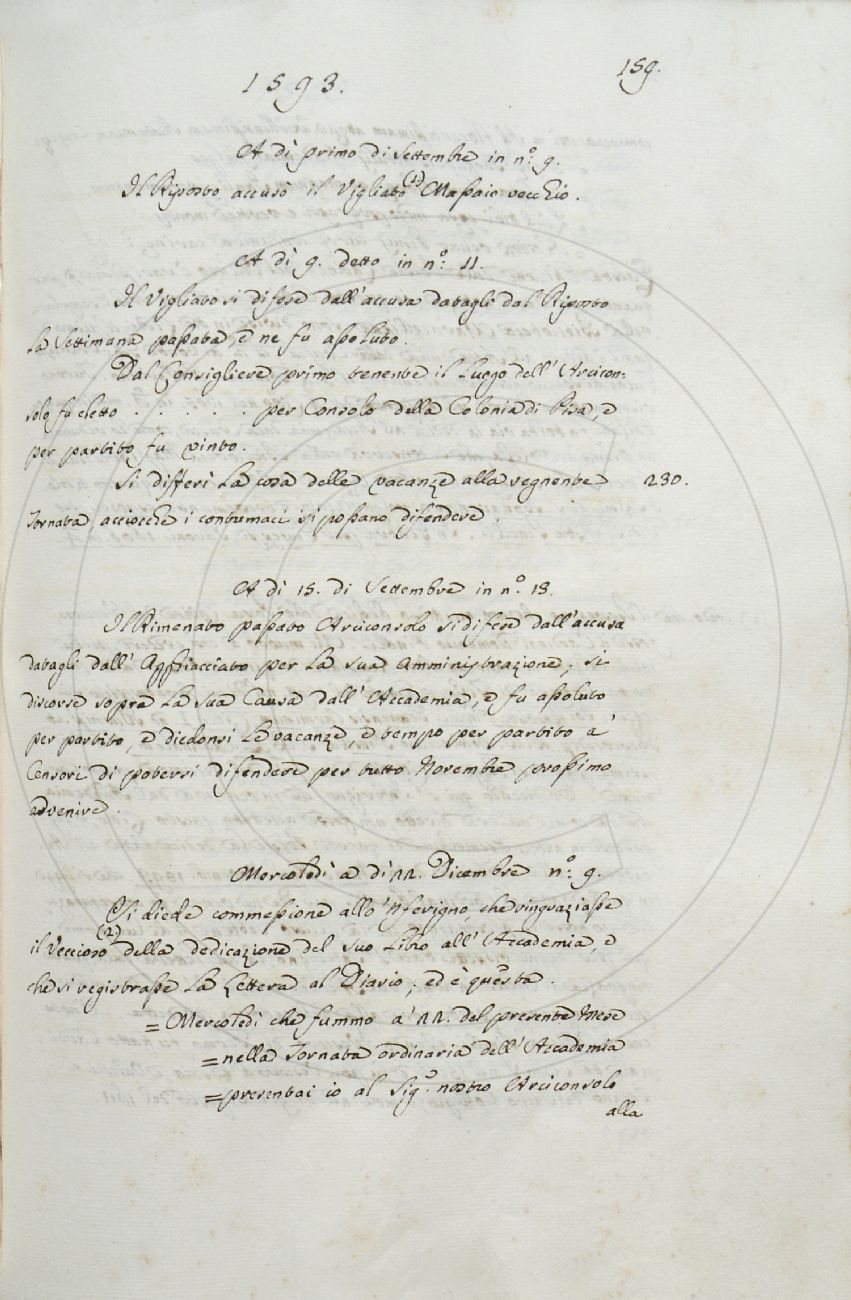 1593.
159.
A dì primo di Settembre in n.º 9.
Il Riposto accusò il Vigliato (1) Massaio vecchio.
A dì 9. detto in n.º 11.
Il Vigliato si difese dall'accusa datagli dal Riposto
la Settimana passata, e ne fu assoluto.
Dal Consigliere primo tenente il Luogo dell'Arcicon-
solo fu eletto . . . . . per Consolo della Colonia di Pisa, e
per partito fu vinto.
Si differì la cosa delle vacanze alla vegnente 230.
Tornata acciocchè i contumaci si possano difendere.
A dì 15. di Settembre in n.º 13.
Il Rimenato passato Arciconsolo si difese dall'accusa
datagli dall'Agghiacciato per la sua Amministrazione; si
discorse sopra la sua Causa dall'Accademia, e fu assoluto
per partito, e diedonsi le vacanze, e tempo per partito a'
Censori di potersi difendere per tutto Novembre prossimo
advenire.
Mercoledì a dì 22. Dicembre n.º 9.
Si diede commessione allo 'Nferigno, che ringraziasse
il Veccioso (2) della dedicazione del suo Libro all'Accademia, e
che si registrasse la Lettera al Diario; ed è questa.
= Mercoledì che fummo a' 22. del presente Mese
= nella Tornata ordinaria dell'Accademia
= presentai io al Sig.r nostro Arciconsolo
alla